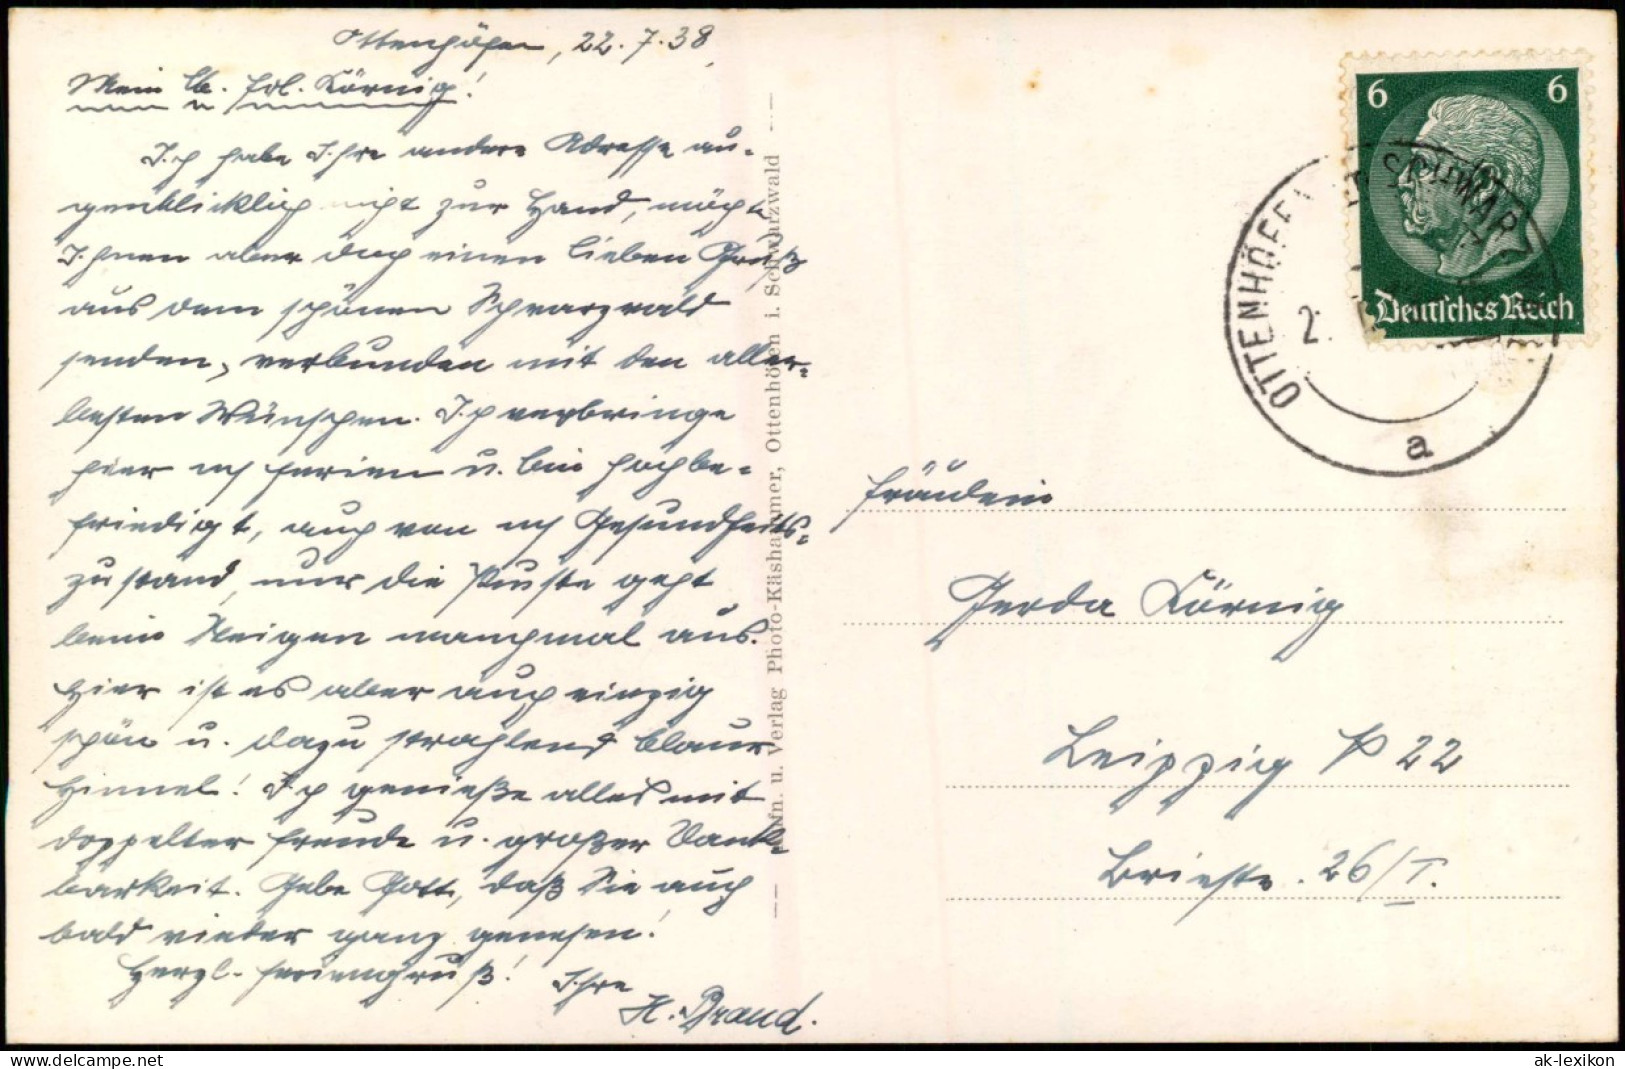 Ottenhöfen, 22.7.38.
Mein lb. Frl. Körnig!
Ich habe Ihre andere Adresse au-
genblicklich nicht zur Hand, möchte
Ihnen aber doch einen lieben Gruß
aus dem schönen Schwarzwald
senden, verbunden mit den aller-
besten Wünschen. Ich verbringe
hier m/ Ferien u. bin hochbe-
friedigt, auch von m/ Gesundheits-
zustand, nur die Puste geht
beim Steigen manchmal aus.
Hier ist es aber auch einzig
schön u. dazu strahlend blauer
Himmel! Ich genieße alles mit
doppelter Freude u. großer Dank-
barkeit. Gebe Gott, daß Sie auch
bald wieder ganz genesen!
Herzl. Feriengruß! Ihre
H. Brand.
Aufn. u. Verlag Photo-Käshammer, Ottenhöfen i. Schwarzwald
6 6
Deutsches Reich
OTTENHÖFEN SCHWARZW
2.
a
Fräulein
Gerda Körnig
Leipzig P 22
26/I.
ak-lexikon
delcampe.net